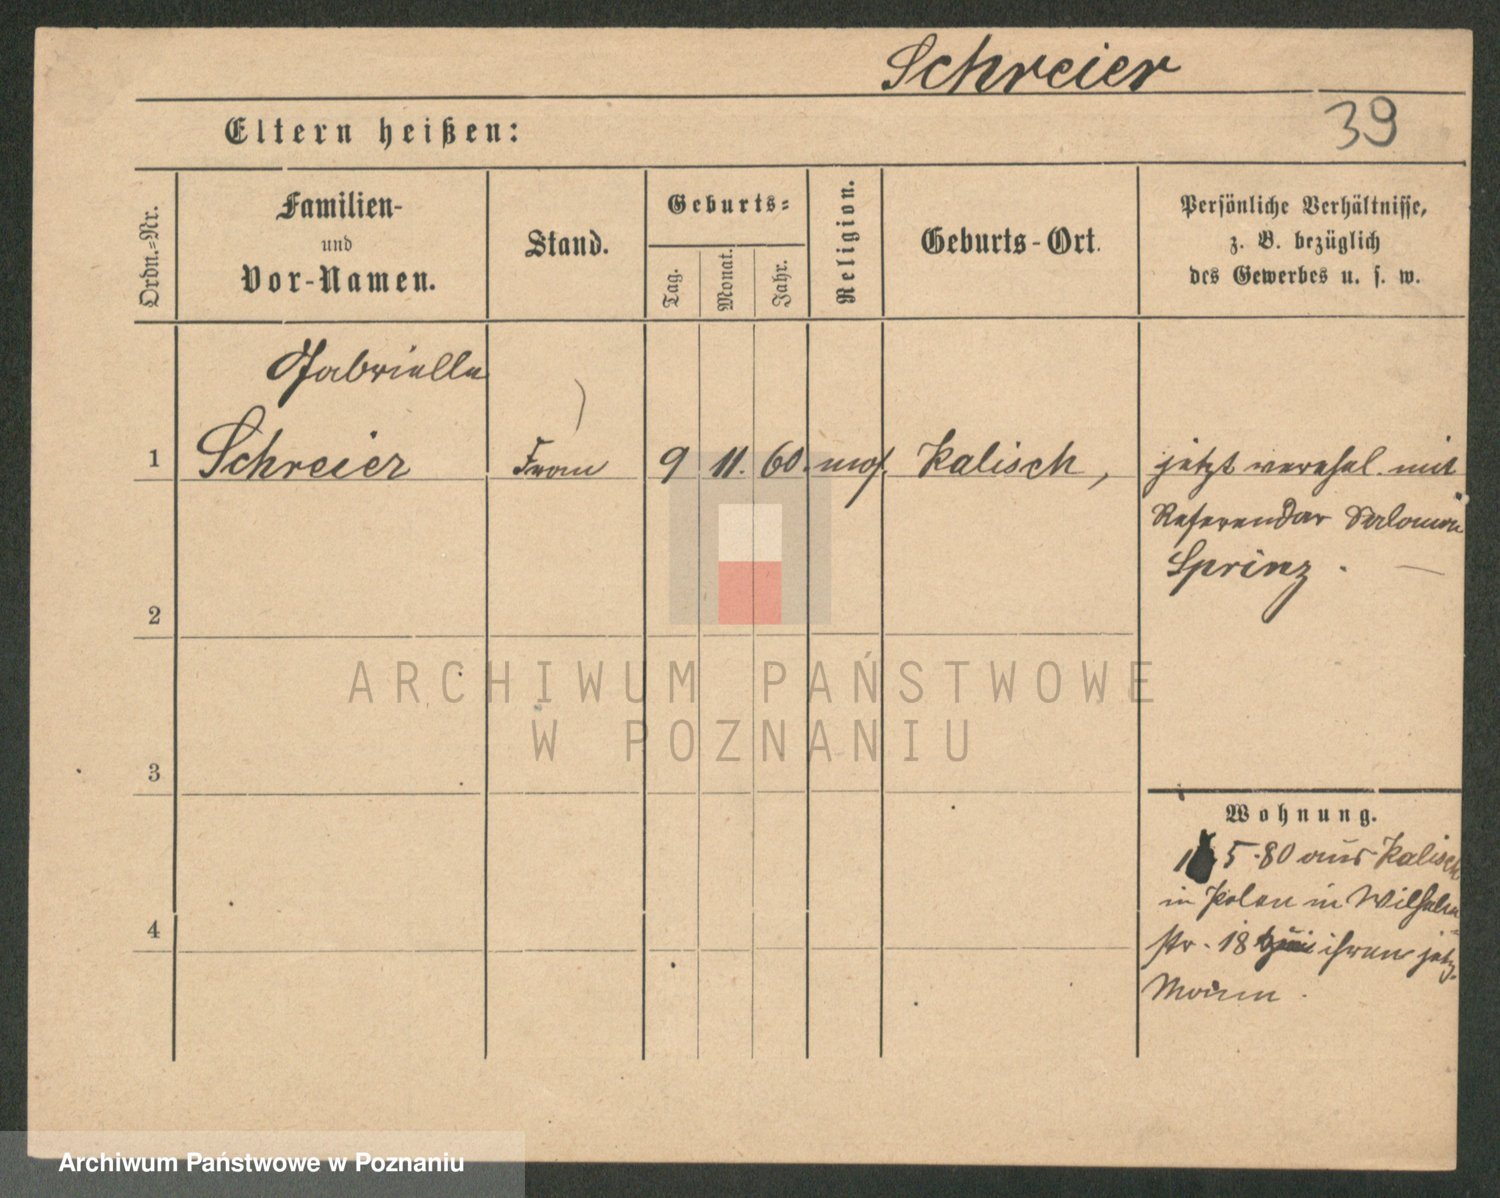 Schreier
39
Eltern heißen:
Ordn.=Nr.
Familien-
und
Vor-Namen.
Stand.
Geburts=
Tag.
Monat.
Jahr.
Religion.
Geburts-Ort.
Persönliche Verhältnisse,
z. B. bezüglich
des Gewerbes u. s. w.
Gabrielle
1 Schreier Frau 9 11. 60. mos. Kalisch, jetzt verehel. mit
Referendar Salomon
Sprinz.
2
3
4
Wohnung.
5.80 aus Kalisch
in Polen in Wilhelm
str. 18 ihren jetz.
Mann.
ARCHIWUM PAŃSTWOWE
W POZNANIU
Archiwum Państwowe w Poznaniu